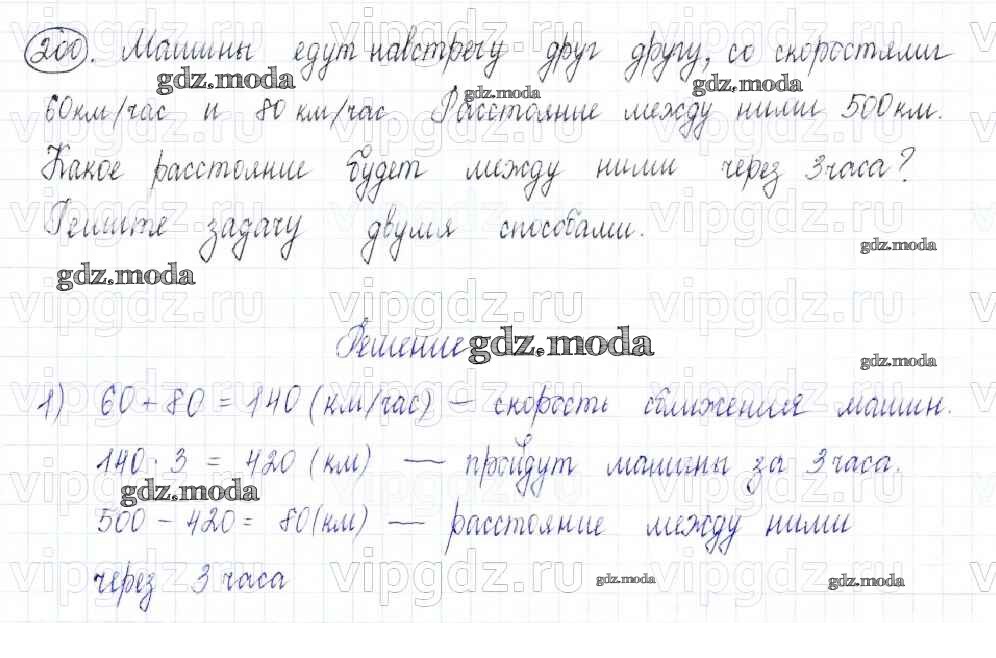 200. Машины едут навстречу друг другу, со скоростями
gdz.moda gdz.moda gdz.moda
60км/час и 80 км/час. Расстояние между ними 500км.
Какое расстояние будет между ними через 3часа?
Решите задачу двумя способами.
gdz.moda
gdz.moda
vipgdz.ru vipgdz.ru vipgdz.ru
Решение gdz.moda
gdz.moda
1) 60 + 80 = 140 (км/час) — скорость сближения машин.
140 · 3 = 420 (км) — пройдут машины за 3часа.
gdz.moda
500 - 420 = 80(км) — расстояние между ними
через 3 часа
gdz.moda gdz.moda
vipgdz.ru vipgdz.ru vipgdz.ru